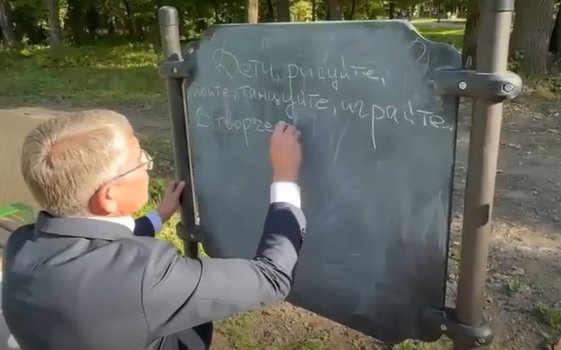 Дети, рисуйте,
пойте, танцуйте, играйте...
В творче